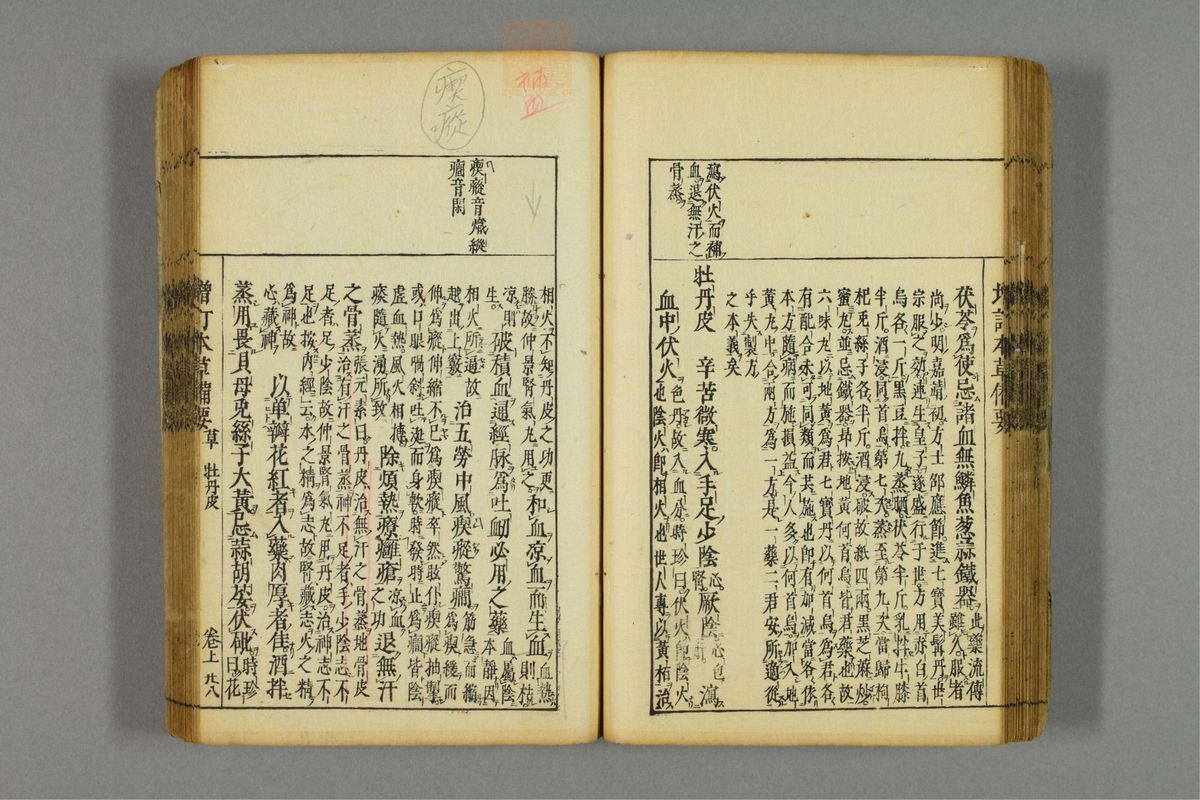 伏苓爲使忌諸血無鱗魚葱蒜鐵器
此藥流傳
雖久服者
尚少明嘉靖初方士邵應節進七寶美髯丹世
宗服之効連生皇子遂盛行于世方用赤白首
烏各一斤黑豆拌九蒸晒伏苓半斤乳拌牛膝
半斤酒浸同首烏第七次蒸至第九次當歸枸
杞兎絲子各半斤酒浸破故紙四兩黑芝麻炒
蜜丸並忌鐵器昻按地黄何首烏皆君藥也故
六味丸以地黄爲君七寶丹以何首烏爲君各
有配合未可同類而共施也即有加減當各依
本方隨病而施損益今人多以何首烏加入地
黄丸中合兩方爲一方是一藥二君安所適從
乎失製方
之本義矣
瀉伏火而補
血退無汗之
骨蒸
牡丹皮 辛苦微寒入手足少陰心腎厥陰心包瀉
血中伏火
色丹故入血分時珍曰伏火即陰火
也陰火即相火也世人專以黄柏治
相火不知丹皮之功更
勝故仲景腎氣丸用之
和血凉血而生血
血熱
則枯
凉則
生
破積血通經脉爲吐衂必用之藥
血屬陰
本靜因
相火所逼故
越出上竅
治五勞中風瘈瘲驚癇
筋急而縮
爲瘈緩而
伸爲瘲伸縮不已爲瘈瘲卒然眩仆瘈瘲抽掣
或口眼喎斜吐涎而身軟時發時止爲癇皆陰
虚血熱風火相搏
痰隨火湧所致
除煩熱療癰瘡
凉血
之功
退無汗
之骨蒸
張元素曰丹皮治無汗之骨蒸地骨皮
治有汗之骨蒸神不足者手少陰志不
足者足少陰故仲景腎氣丸用丹皮治神志不
足也按内經云水之精爲志故腎藏志火之精
爲神故
心藏神
以単瓣花紅者入藥肉厚者佳酒拌
蒸用畏貝母兎絲子大黄忌蒜胡荽伏砒
時珍
曰花
瘈瘲音熾縱
癇音閑
瘈瘲
補血
増訂本草備要 草 牡丹皮 卷上 卅八